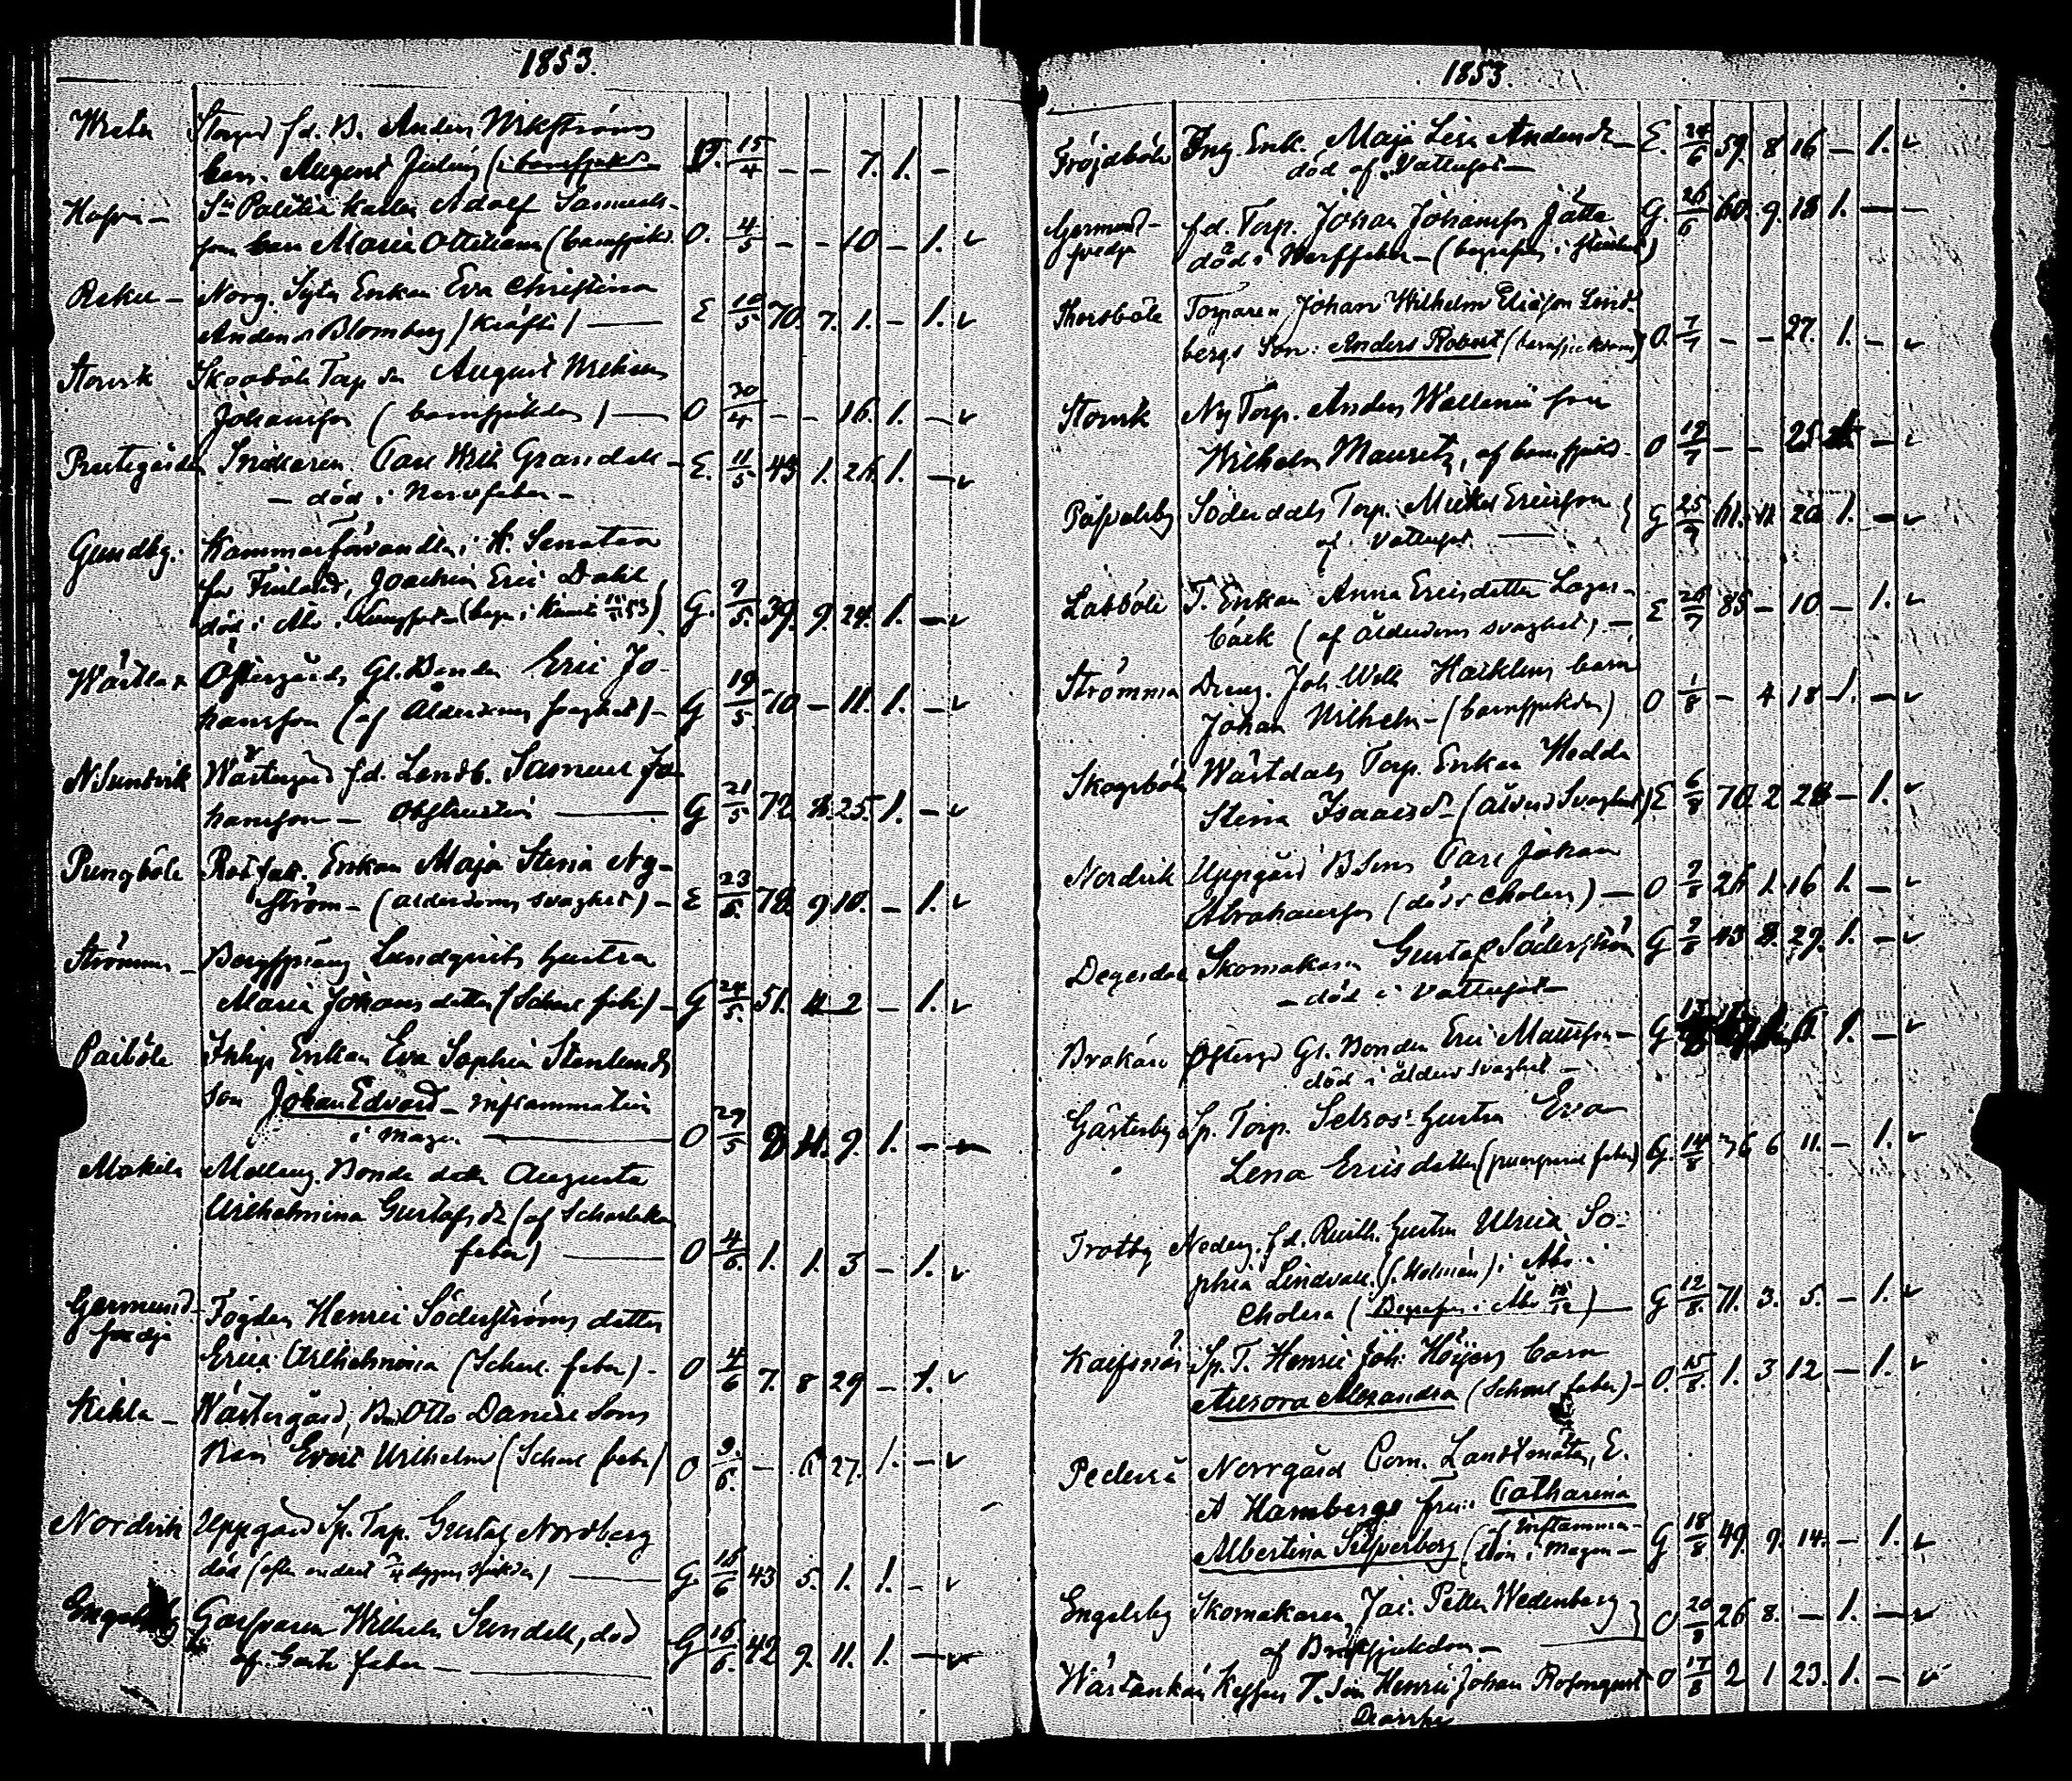 1853.
Storgd f.d. B. Anders Wikströms
barn August Julius (barnsjukd.
O. 15/4 — — 7. 1. —
Hofvi —
Adolf Samuels-
son barn Maria Ottiliana (barnsjukd.
O. 4/5 — — 10 — 1. v
Reku — Norg. Sytn. Enkan Eva Christina
Anders d Blomberg (kräfta) —
E 10/5 70. 7. 1. — 1. v
Storvik Skogböle Torp. son August Wilhelm
Johansson (barnsjukdom) —
O 30/4 — — 16. 1. — v
Prestegården Carl Wilh Grandell —
E. 11/5 43 1. 26. 1. — v
— död i Nervfeber —
Gundby. Kammarförvandten i K. Senaten
för Finland, Joachim Eric Dahl
död i Åbo i Lungsot — (begr. i Kimito 53)
G. 7/5. 39. 9. 24. 1. — v
Wästlax Östergårds Gl. Bonden Eric Jo-
hansson (af Ålderdoms svaghet) —
G 19/5 70 — 11. 1. — v
N. Sundvik Wästergård f.d. Landb. Samuel Jo-
hansson — Obstruction —
G 21/5 72. 25. 1. — v
Pungböle Enkan Maja Stina Ny-
ström — (ålderdoms svaghet) —
E 23/5. 78. 9 10. — 1. v
Strömma — Bergsprång. Lundqvists hustru
Maria Johansdotter (Scharl. feber) —
G 24/5. 51. 11 2 — 1. v
Paiböle Enkan Eva Sophia Stenlunds
son Johan Edvard — inflammation
i magen —
O 29/5 8 11. 9. 1. — —
Makila Melleng. Bonde dottr Augusta
Wilhelmina Gustafsdr (af Scharlakans
feber) —
O 4/6. 1. 1. 3 — 1. v
Germund-
svedja
Fogden Henric Söderströms dotter
Erica Wilhelmina (Scharl. feber) —
O 4/6 7. 8 29 — 1. v
Kihla — Wästergård, Bn Otto Daniel Sons
Barn Evert Wilhelm (Scharl. feber)
O 9./6. — 6 27. 1. — v
Nordvik Uppgård Sp. Torp. Gustaf Nordberg
död (efter endast dygns sjukdom) —
G. 15/6 43 5. 1. 1. — v
Engelsby Garfvaren Wilhelm Sundell, död
af Gastr. feber —
G 16/6. 42 9. 11. 1. — v
1853.
Fröjdböle Enk. Maja Lisa Andersdr —
E. 24/6 59. 8 16 — 1. v
död af Vattusot —
Germund-
svedja
f.d. Torp. Johan Johansson Jätte
G. 26/6 60. 9. 18 1. — —
död i Nervfeber — (begrafven i
Thorsböle Torparen Johan Wilhelm Ericsson Lind-
bergs Son: Anders Robert (barnsjukdom)
O. 7/7 — — 27. 1. — v
Storvik Ny Torp. Anders Wallenii son
Wilhelm Mauritz, af barnsjukd.
O 12/7 — — 25 — v
Påfvalsby Söderdals Torp. Mickel Ericsson
af Vattusot —
G 25/7 61. 11. 20 1. — v
Lårböle T. Enkan Anna Ericsdotter Lager-
bäck (af ålderdoms svaghet) —
E 26/7 85 — 10 — 1. v
Strömma Dreng. Joh. Wilh Häcklins barn
Johan Wilhelm — (barnsjukdom)
O 1/8 — 4 18 1. — v
Skogsböle Wästdals Torp. Enkan Hedda
Stina Isaacsd — (ålderd. Svaghet)
E 6/8 70 2 28 — 1. v
Nordvik Uppgård B. Sons Carl Johan
Abrahamsson (död i Cholera) —
O 7/8 26 1. 16 1. — v
Degerdal Skomakaren Gustaf Söderström
G 7/8 43 8. 29. 1. — v
— död i Vattusot —
Brokärr Östergd Gl. Bonden Eric Mattsson —
G 6. 1. — v
död i ålderd. svaghet —
Gästerby Sp. Torp. Selros' hustru Eva
Lena Ericsdotter (puerperal feber)
G. 14/8 36 6 11. — 1. v
Trotby Nederg. f.d. hustru Ulrica So-
phia Lindvall. (f. Holmén) i Åbo i
Cholera (Begrafven i Åbo) —
G 12/8. 71. 3. 5. — 1. v
Kaifsnäs Sp. T. Henric Joh. Höijers barn
Aurora Alexandra (Scharl. feber) —
O. 15/8. 1. 3 12 — 1. v
Pederså Norrgård Com. Landtmätn, E.
A Hambergs fru: Catharina
Albertina Silfverberg (af inflamma-
tion i magen —
G 18/8 49. 9. 14. — 1. v
Engelsby Skomakaren Jac. Petter Wedenberg
af Bröstsjukdom —
O 20/8 26 8. — 1. — v
Wästankärr T. Son Henric Johan Rosenqvist
O 17/8 2 1 23. 1. — v